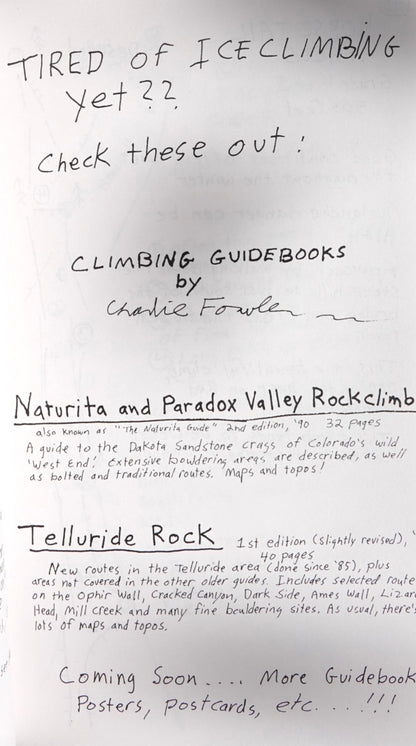 TIRED of ICECLIMBING
yet??
Check these out!
CLIMBING GUIDEBOOKS
by
Charlie Fowler
Naturita and Paradox Valley Rockclimb
also known as "The Naturita Guide" 2nd edition, '90 32 pages
A guide to the Dakota Sandstone crags of Colorado's wild
'West End'. Extensive bouldering areas are described, as well
as bolted and traditional routes. Maps and topos!
Telluride Rock 1st edition (slightly revised), '
40 pages
New routes in the Telluride area (done since '85), plus
areas not covered in the other older guides. Includes selected route
on the Ophir Wall, Cracked Canyon, Dark Side, Ames Wall, Lizar
Head, Mill Creek and many fine bouldering sites. As usual, there's
lots of maps and topos.
Coming Soon .... More Guidebook
Posters, postcards, etc. . . !!!